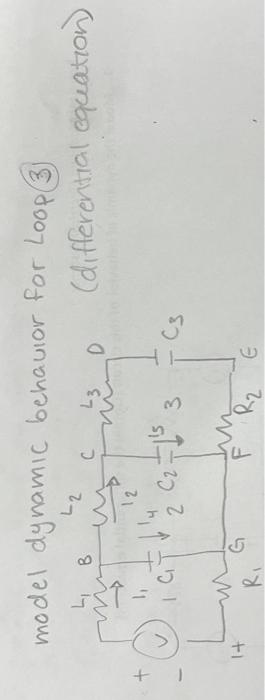 model dynamic behavior for Loop 3
(differential equation)
L1 L2 L3
B C D
+ i1 i2
i4 i5
V 1 C1 2 C2 3 C3
-
H G F E
R1 R2